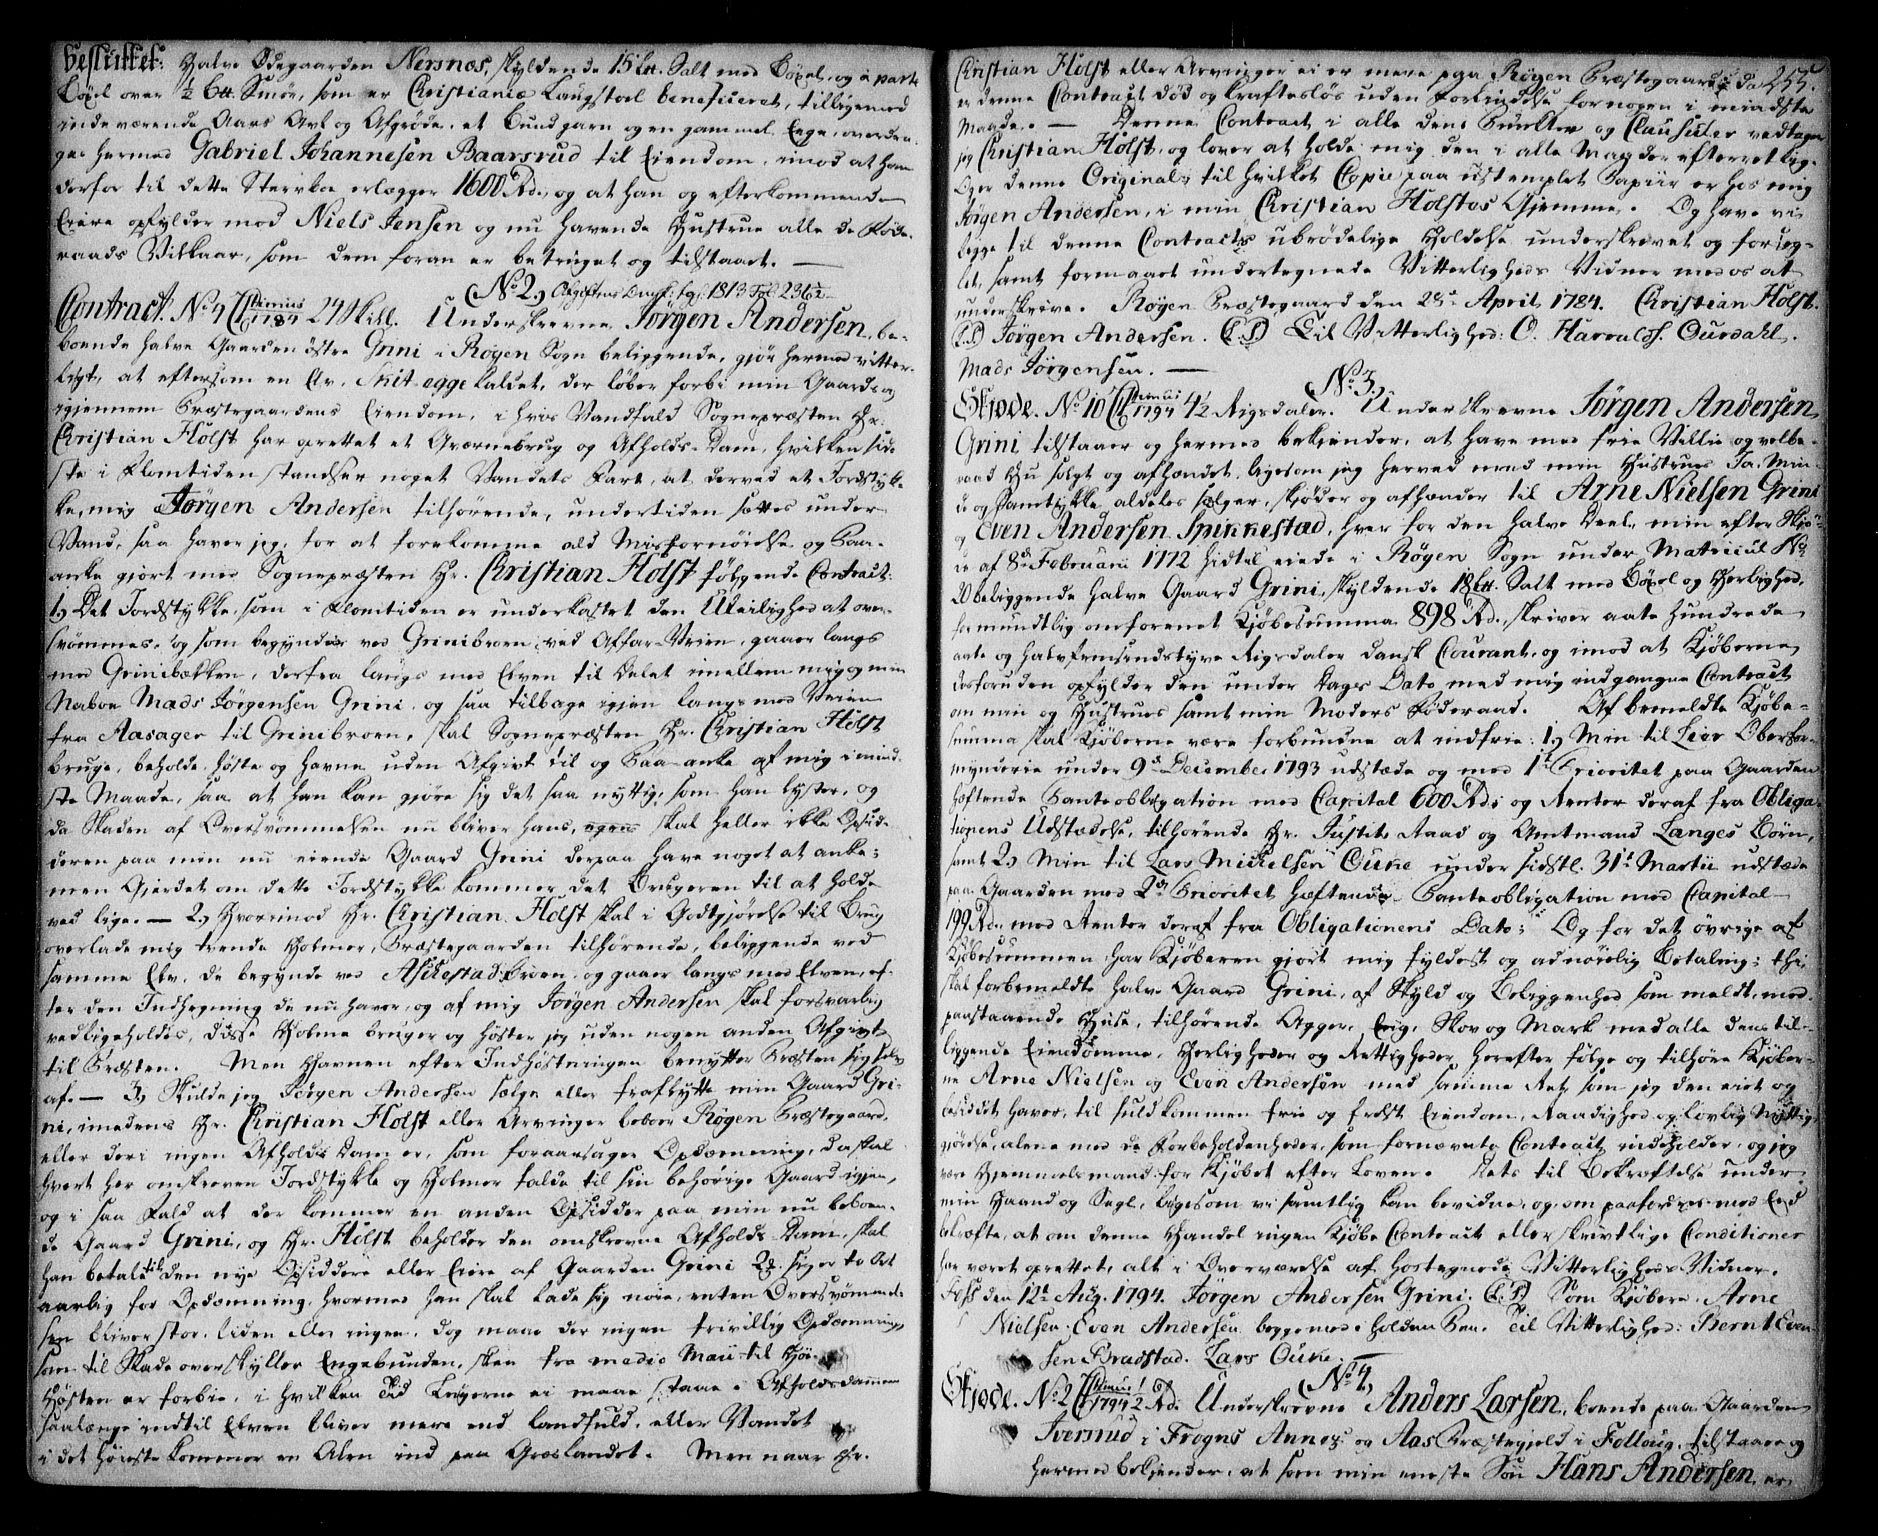 besluttet: Halve Ødegaarden Nersnæs, skyldende 15 Lb. Salt med Böxel, og à parte
Böxel over ½ Lb. Smör, som er Christianiæ Laugstoel beneficeret, tilligemed
indeværende Aars Avl og Afgröde, et Bundgarn og en gammel Ege, overdra-
ges hermed Gabriel Johannesen Baarsrud til Eiendom, imod at han
derfor til dette Sterrboe erlægger 1600 Rd., og at han og efterkommende
Eiere opfylder mod Niels Jensen og nu havende Hustrue alle de Föde-
raads Vilkaar, som dem foran er betinget og tilstaaet. —
(No 2) Afgiftens Qvit: fol: 1813 Fol 236½
Contract. No 4 Ctimus 1784 24 Skill. Underskrevne Jörgen Andersen, be-
boende halve Gaarden östre Grini i Røgen Sogn beliggende, gjör hermed vitter-
ligt, at eftersom en Elv, Skitegge kaldet, der löber forbi min Gaard og
igjennem Præstegaardens Eiendom, i hvis Vandfald Sognepræsten Hr.
Christian Holst har oprettet et Qværnebrug og Afholds-Dam, hvilken sid-
ste i Flomtiden standser noget Vandets Fart, at derved et Jordstyk-
ke, mig Jörgen Andersen tilhörende, undertiden sættes under
Vand, saa haver jeg, for at forekomme ald Misfornöielse og Paa-
anke gjort med Sognepræsten Hr. Christian Holst fölgende Contract:
1.) Det Jordstykke, som i Flomtiden er underkastet den Uleilighed at over-
svömmes, og som begynder ved Grinibroen ved Alfar-Veien, gaaer langs
med Grinibækken, derfra langs med Elven til Delet imellem mig og min
Naboe Mads Jörgensen Grini, og saa tilbage igjen langs med Veien
fra Aasager til Grinibroen, skal Sognepræsten Hr. Christian Holst
bruge, beholde, höste og havne uden Afgivt til og Paa-anke af mig i mind-
ste Maade, saa at han kan gjöre sig det saa nyttig, som han lyster, og
da Skaden af Oversvömmelsen nu bliver hans, skal heller ikke Opsid-
deren paa min nu eiende Gaard Grini derpaa have noget at anke;
men Gjerdet om dette Jordstykke kommer det Brugeren til at holde
ved lige. — 2.) Hvorimod Hr. Christian Holst skal i Godtgjörelse til Brug
overlade mig trende Holmer, Præstegaarden tilhörende, beliggende ved
samme Elv, de begynde ved Askestad-Broen, og gaaer langs med Elven, ef-
ter den Indhegning de nu haver, og af mig Jörgen Andersen skal forsvarlig
vedligeholdes, disse Holme bruger og höster jeg uden nogen anden Afgivt
til Præsten. Men Havnen efter Indhöstningen benytter Præsten sig selv
af. — 3.) Skulde jeg Jörgen Andersen sælge eller frabytte min Gaard Gri-
ni, imedens Hr. Christian Holst eller Arvinger beboer Røgen Præstegaard,
eller deri ingen Afholds Dam er, som foraarsager Opdæmning, da skal
hvert her omskreven Jordstykke og Holmer falde til sin behörige Gaard igjen,
og i saa Fald at der kommer en anden Opsidder paa min nu beboen-
de Gaard Grini, og Hr. Holst beholder den omskrevne Afholds Dam, skal
han betale til den nye Opsiddere eller Eiere af Gaarden Grini 2 Rd. siger to Ort
aarlig for Opdæmning, hvormed han skal lade sig nöie, enten Oversvömmel-
sen bliver stor, liden eller ingen, dog maae der ingen frivillig Opdæmning,
som til Skade overskyller Engebunden, skee fra medio Maii til Höi-
Hösten er forbie, i hvilken Tid Lugerne ei maae staae i Afholdsdammen
saalænge indtil Elven bliver mere end landfuld, eller Vandet
i det höieste kommer en Alen ind paa Græslandet. Men naar Hr.
255.
Christian Holst eller Arvinger ei er mere paa Røgen Præstegaard, da
er denne Contract död og kraftesløs uden Forbindelse for nogen i mindste
Maade. — Denne Contract i alle dens Puncter og Clausuler vedtager
jeg Christian Holst, og lover at holde mig den i alle Maader efterrettelig.
Og er denne Original, til hvilket Copie paa ustemplet Papiir er hos mig
Jörgen Andersen, i min Christian Holstes Gjemme. Og have vi
begge til denne Contracts ubrødelige Holdelse underskrevet og forseg-
let, samt formaaet undertegnede Vitterligheds Vidner med os at
underskrive. Røgen Præstegaard den 28de April 1784. Christian Holst.
(L.S.) Jörgen Andersen. (L.S.) Til Vitterlighed: O. Haraldss. Ourdahl.
Mads Jörgensen. —
(No 3.)
Skjøde. No 10 Ctimus 1794 4½ Rigsdaler. Underskrevne Jörgen Andersen
Grini tilstaaer og hermed bekjender, at have med frie Villie og velbe-
raad Hu solgt og afhændet, ligesom jeg herved med min Hustrues Ja, Min-
de og Samtykke aldeles sælger, skjøder og afhænder til Arne Nielsen Grini
og Even Andersen Spikkestad, hver for den halve Deel, min efter Skjö-
de af 8de Februarii 1772 hidtil eiede i Røgen Sogn under Matricul No
20 beliggende halve Gaard Grini, skyldende 18 Lb. Salt med Böxel og Herlighed,
for mundtlig omforenet Kjøbesumma 898 Rd., skriver aate hundrede
aate og halvfemsindstyve Rigsdaler dansk Courant, og imod at Kjöberne
desforuden opfylder den under Dags Dato med mig indgangne Contract
om min og Hustrues samt min Moders Föderaad. Af bemeldte Kjøbe-
summa skal Kjöberne være forbundne at indfrie: 1.) Min til Lier Oberfor-
mynderie under 9de December 1793 udstædte og med 1ste Prioritet paa Gaarden
heftende Panteobligation med Capital 600 Rd. og Renter deraf fra Obliga-
tionens Udstædelse, tilhörende Hr. Justits Raad og Amtmand Langes Börn,
samt 2.) Min til Lars Mickelsen Ouke under sidstl. 31te Martii udstædte
paa Gaarden med 2den Prioritet hæftende Panteobligation med Capital
199 Rd. med Renter deraf fra Obligationens Dato; Og for det övrige af
Kjøbesummen har Kjöberen gjort mig fyldest og adnöielig Betaling; thi
skal forbemeldte halve Gaard Grini, af Skyld og Beliggenhed som meldt, med
paastaaende Huse, tilhörende Agger, Eng, Skov og Mark med alle dens til-
liggende Eiendomme, Herligheder og Rettigheder, herefter fölge og tilhöre Kjöber-
ne Arne Nielsen og Even Andersen med samme Ret, som jeg den eiet og
besiddet haver, til fuldkommen frie og frelst Eiendom, Raadighed og lovlig Nyttig-
gjörelse, alene med de Forbeholdenheder, som fornævnte Contract indeholder, og jeg
være Hjemmelsmand for Kjøbet efter Loven. Dets til Bekræftelse under
min Haand og Segl, ligesom vi samtlig kan bevidne, og om paafordres med Eed
bekræfte, at om denne Handel ingen Kjöbe Contract eller skrivtlige Conditioner
har været oprettet, alt i Overværelse af hostegnede Vitterligheds Vidner.
Foss den 12te Aug. 1794. Jörgen Andersen Grini. (L.S.) Som Kjöbere: Arne
Nielsen. Even Andersen begge med iholden Pen. Til Vitterlighed: Bernt Even-
sen Bradstad. Lars Ouke. —
(No 4.)
Skjøde. No 2 Ctimus 1794 ½ Rd. Underskrevne Anders Larsen, boende paa Gaarden
Iversrud i Frogns Annex og Aas Præstegjeld i Folloug, tilstaaer og
hermed bekjender, at som min eneste Sön Hans Andersen, er